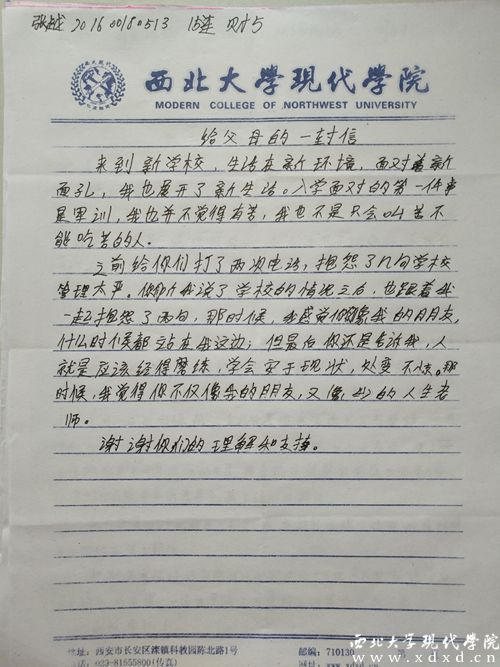 张越 20160080513 15连 财5
西北大學現代學院
MODERN COLLEGE OF NORTHWEST UNIVERSITY
给父母的一封信
来到新学校,生活在新环境,面对着新
面孔,我也展开了新生活。入学面对的第一件事
是军训,我也并不觉得有苦,我也不是只会叫苦不
能吃苦的人。
之前给你们打了两次电话,抱怨了几句学校
管理太严。你听我说了学校的情况之后,也跟着我
一起抱怨了两句,那时候,我感觉你像我的朋友,
什么时候都站在我这边;但最后你还是告诉我,人
就是应该经得磨练,学会安于现状,处变不惊。那
时候,我觉得你不仅像我的朋友,又像我的人生老
师。
谢谢你们的理解和支持。
地址:西安市长安区滦镇科教园陈北路1号
邮编:710130
电话:029-81655800(传真)
西北大学现代学院
www.xdxd.cn